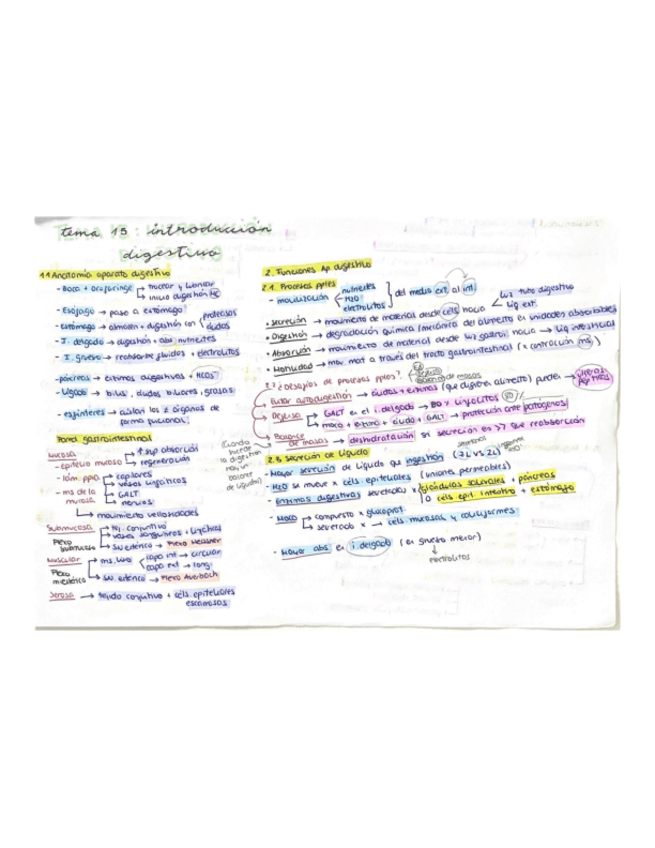 tema 15: introducción
digestivo
1.1 Anatomía aparato digestivo
- Boca + orofaringe → triturar y lubricar
→ inicio digestión HC
- Esófago → paso a estómago
- Estómago → almacén + digestión con proteasas
ácidos
- I. delgado → digestión + abs. nutrientes
- I. grueso → reabsorbe fluidos + electrolitos
- páncreas → enzimas digestivas + HCO3-
- Hígado → bilis, ácidos biliares, grasas
- esfínteres → aislan los ≠ órganos de
forma funcional.
Pared gastrointestinal
Mucosa
- epitelio mucoso → ↑ sup absorción
→ regeneración
- lám. ppia → capilares
→ vasos linfáticos
→ GALT
→ nervios
- ms de la
mucosa
↳ movimiento vellosidades
Submucosa → tej. conjuntivo
→ vasos sanguíneos + linfáticos
→ SN entérico → Plexo Meissner
Plexo
submucoso
Muscular → ms. liso → capa int → circular
→ capa ext → long.
→ SN. entérico → Plexo Auerbach
Plexo
mientérico
Serosa → tejido conjuntivo + céls. epiteliales
escamosas
2. Funciones Ap digestivo
2.1. Procesos pples
- movilización nutrientes
H2O
electrolitos
del medio ext al int
• Secreción → movimiento de material desde céls hacia luz tubo digestivo
líq ext.
• Digestión → degradación química / mecánica del alimento en unidades absorbibles
• Absorción → movimiento de material desde luz gastroi. hacia → líq intersticial
• Motilidad → mov. mat a través del tracto gastrointestinal (x contracción ms.)
2.2 ¿Desafíos de procesos pples?
Evitar autodigestión → ácidos + enzimas (que digieren alimento) pueden →
Defensa → GALT en el i. delgado → 80% linfocitos
→ moco + enzimas + ácido + GALT → protección ante patógenos
Balance
de masas → deshidratación si secreción es >> que reabsorción
(Cuando
sucede
la digestión
hay un
balance
de líquidos)
2.3 Secreción de líquido
- Mayor secreción de líquido que ingestión (7L vs 2L)
- H2O se mueve x céls. epiteliales (uniones permeables)
- Enzimas digestivas secretadas x glándulas salivales + páncreas
o céls epit. intestino + estómago
- Moco → compuesto x glucoprot.
→ secretado x → céls. mucosas y caliciformes
- Mayor abs en i. delgado (en grueso menor)
↓
electrolitos